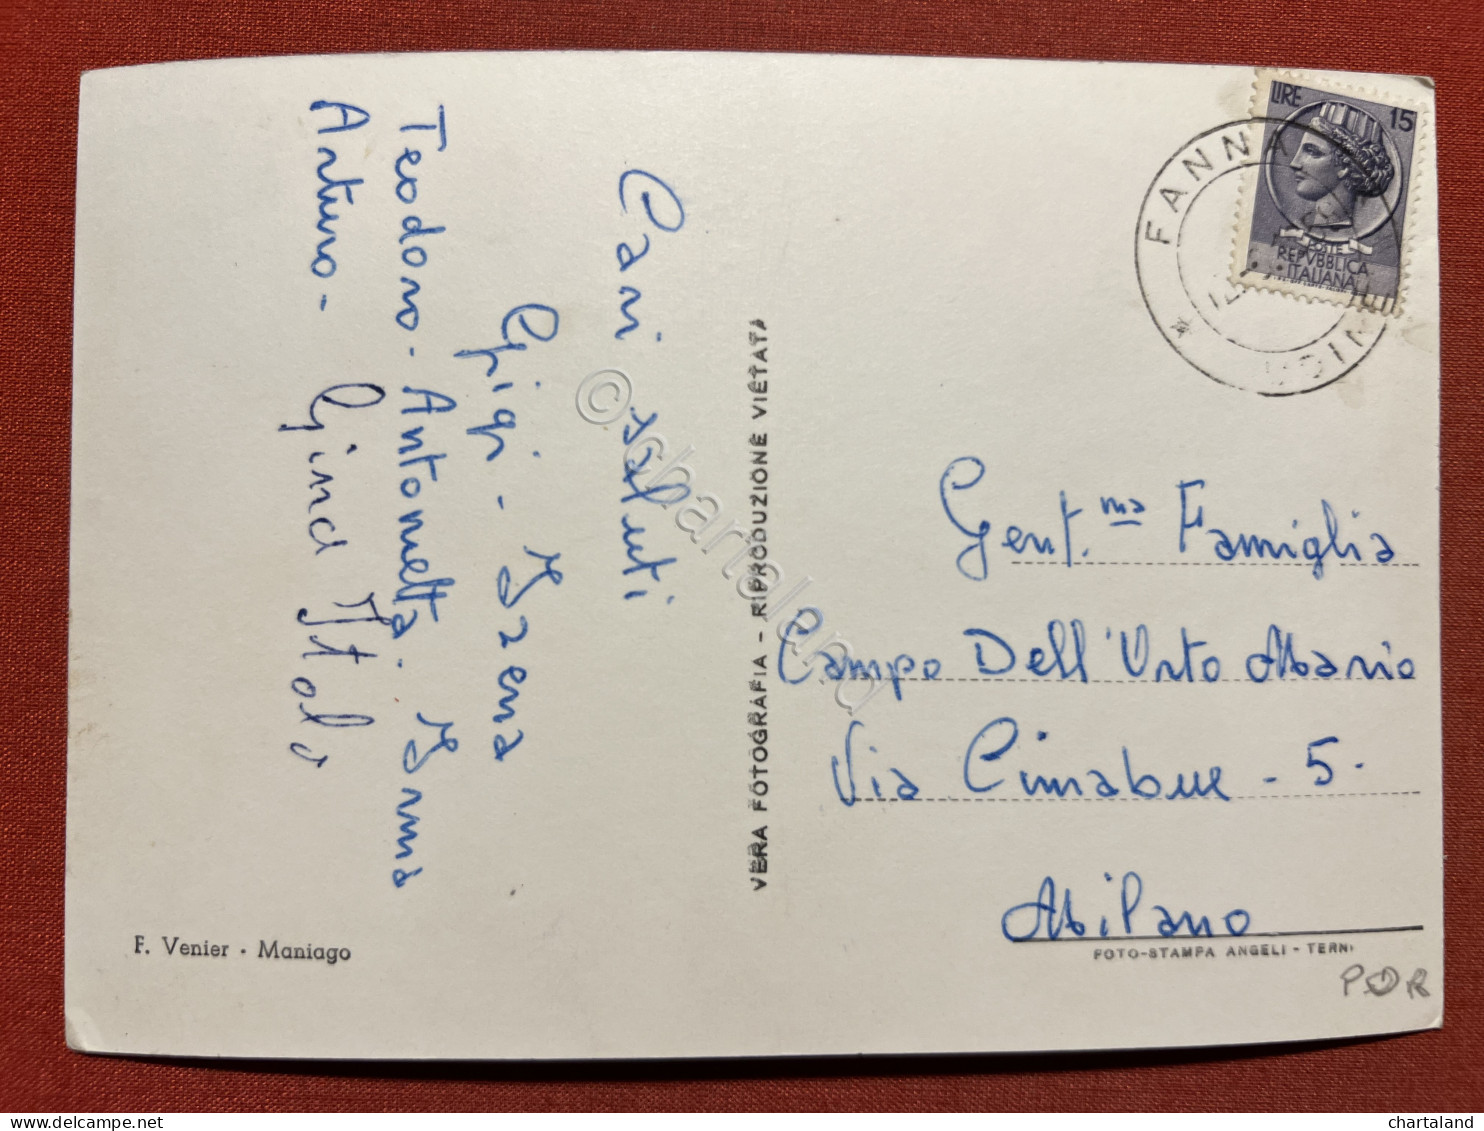 Cari saluti
Gigi - Izena
Teodoro - Antonietta. Irma
Arturo - Gina Italo
F. Venier · Maniago
VERA FOTOGRAFIA - RIPRODUZIONE VIETATA
LIRE 15
POSTE
REPVBBLICA
ITALIANA
FANNA
UDINE
Gent.ma Famiglia
Campo Dell'Orto Mario
Via Cimabue - 5.
Milano
FOTO-STAMPA ANGELI - TERNI
POR
© chartaland
chartaland